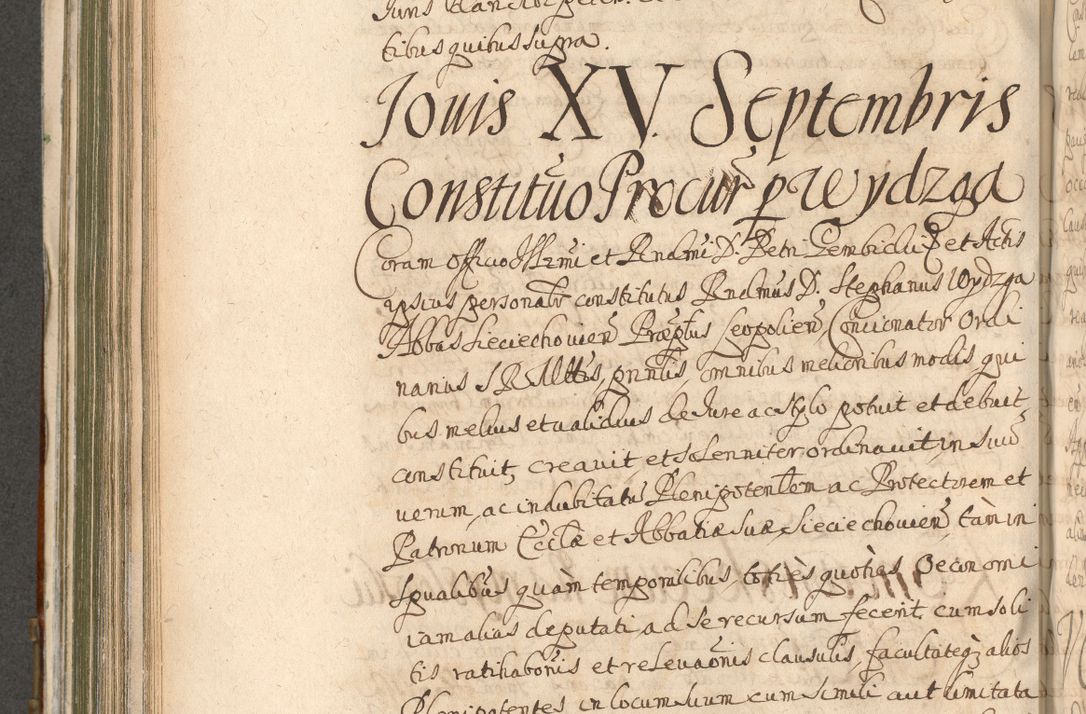 tibus quibus supra.
Jouis XV. Septembris
Constitũo Procur̃ p Wydzga
Coram officio Illr̃mi et Rndmi D. Petri Gembicki et Actis
ipsius personalr̃ constitutus Rndmus D. Stephanus Wydzga
Abbas Sieciechouień Præptus Leopolień, Concionator Ordi
narius S R Mttis, pñtis, omnibus melioribus modis, qui
bus melius et validius de Jure ac stylo potuit et debuit
constituit, creauit et solenniter ordinauit, in suũ
uerum, ac indubitatũ Plenipotentem ac Protectorem et
Patronum Ecclæ et Abbatiæ suæ Sieciechouień tàm in
spualibus quàm temporalibus, totiès quotiès Oeconomi
iam alias deputati, ad se recursum fecerit, cum soli
tis ratihabonis et releuaonis clausulis, facultateq; alios
Plenipotentes in locum suum cum simili aut limitata